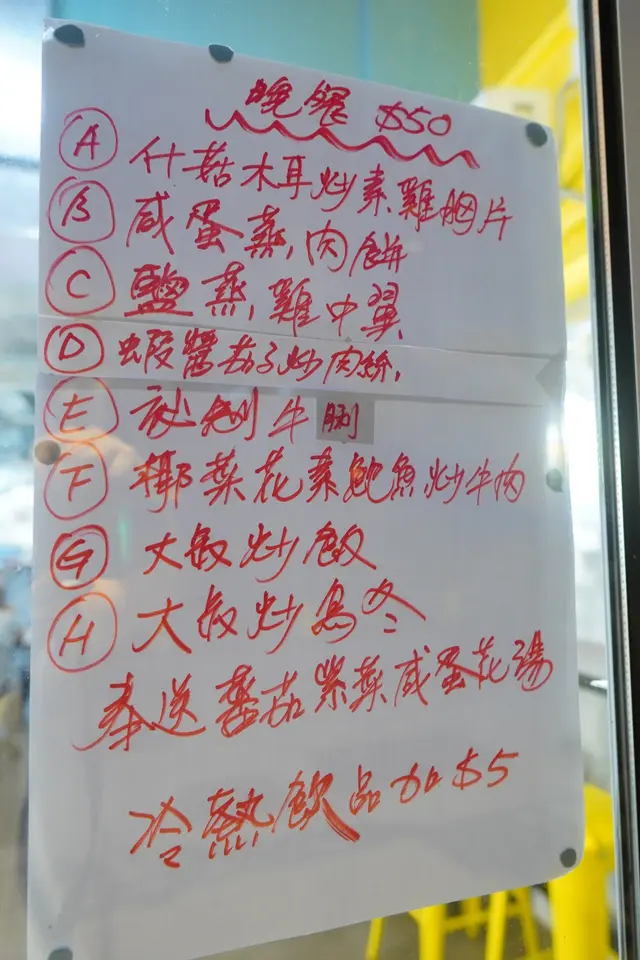 晚餐 $50
A 什菇木耳炒素雞胸片
B 咸蛋蒸肉餅
C 鹽蒸雞中翼
D 蝦醬茄子炒肉絲
E 秘制牛脷
F 椰菜花素鮑魚炒牛肉
G 大廚炒飯
H 大廚炒烏冬
奉送蕃茄紫菜咸蛋花湯
冷熱飲品加$5